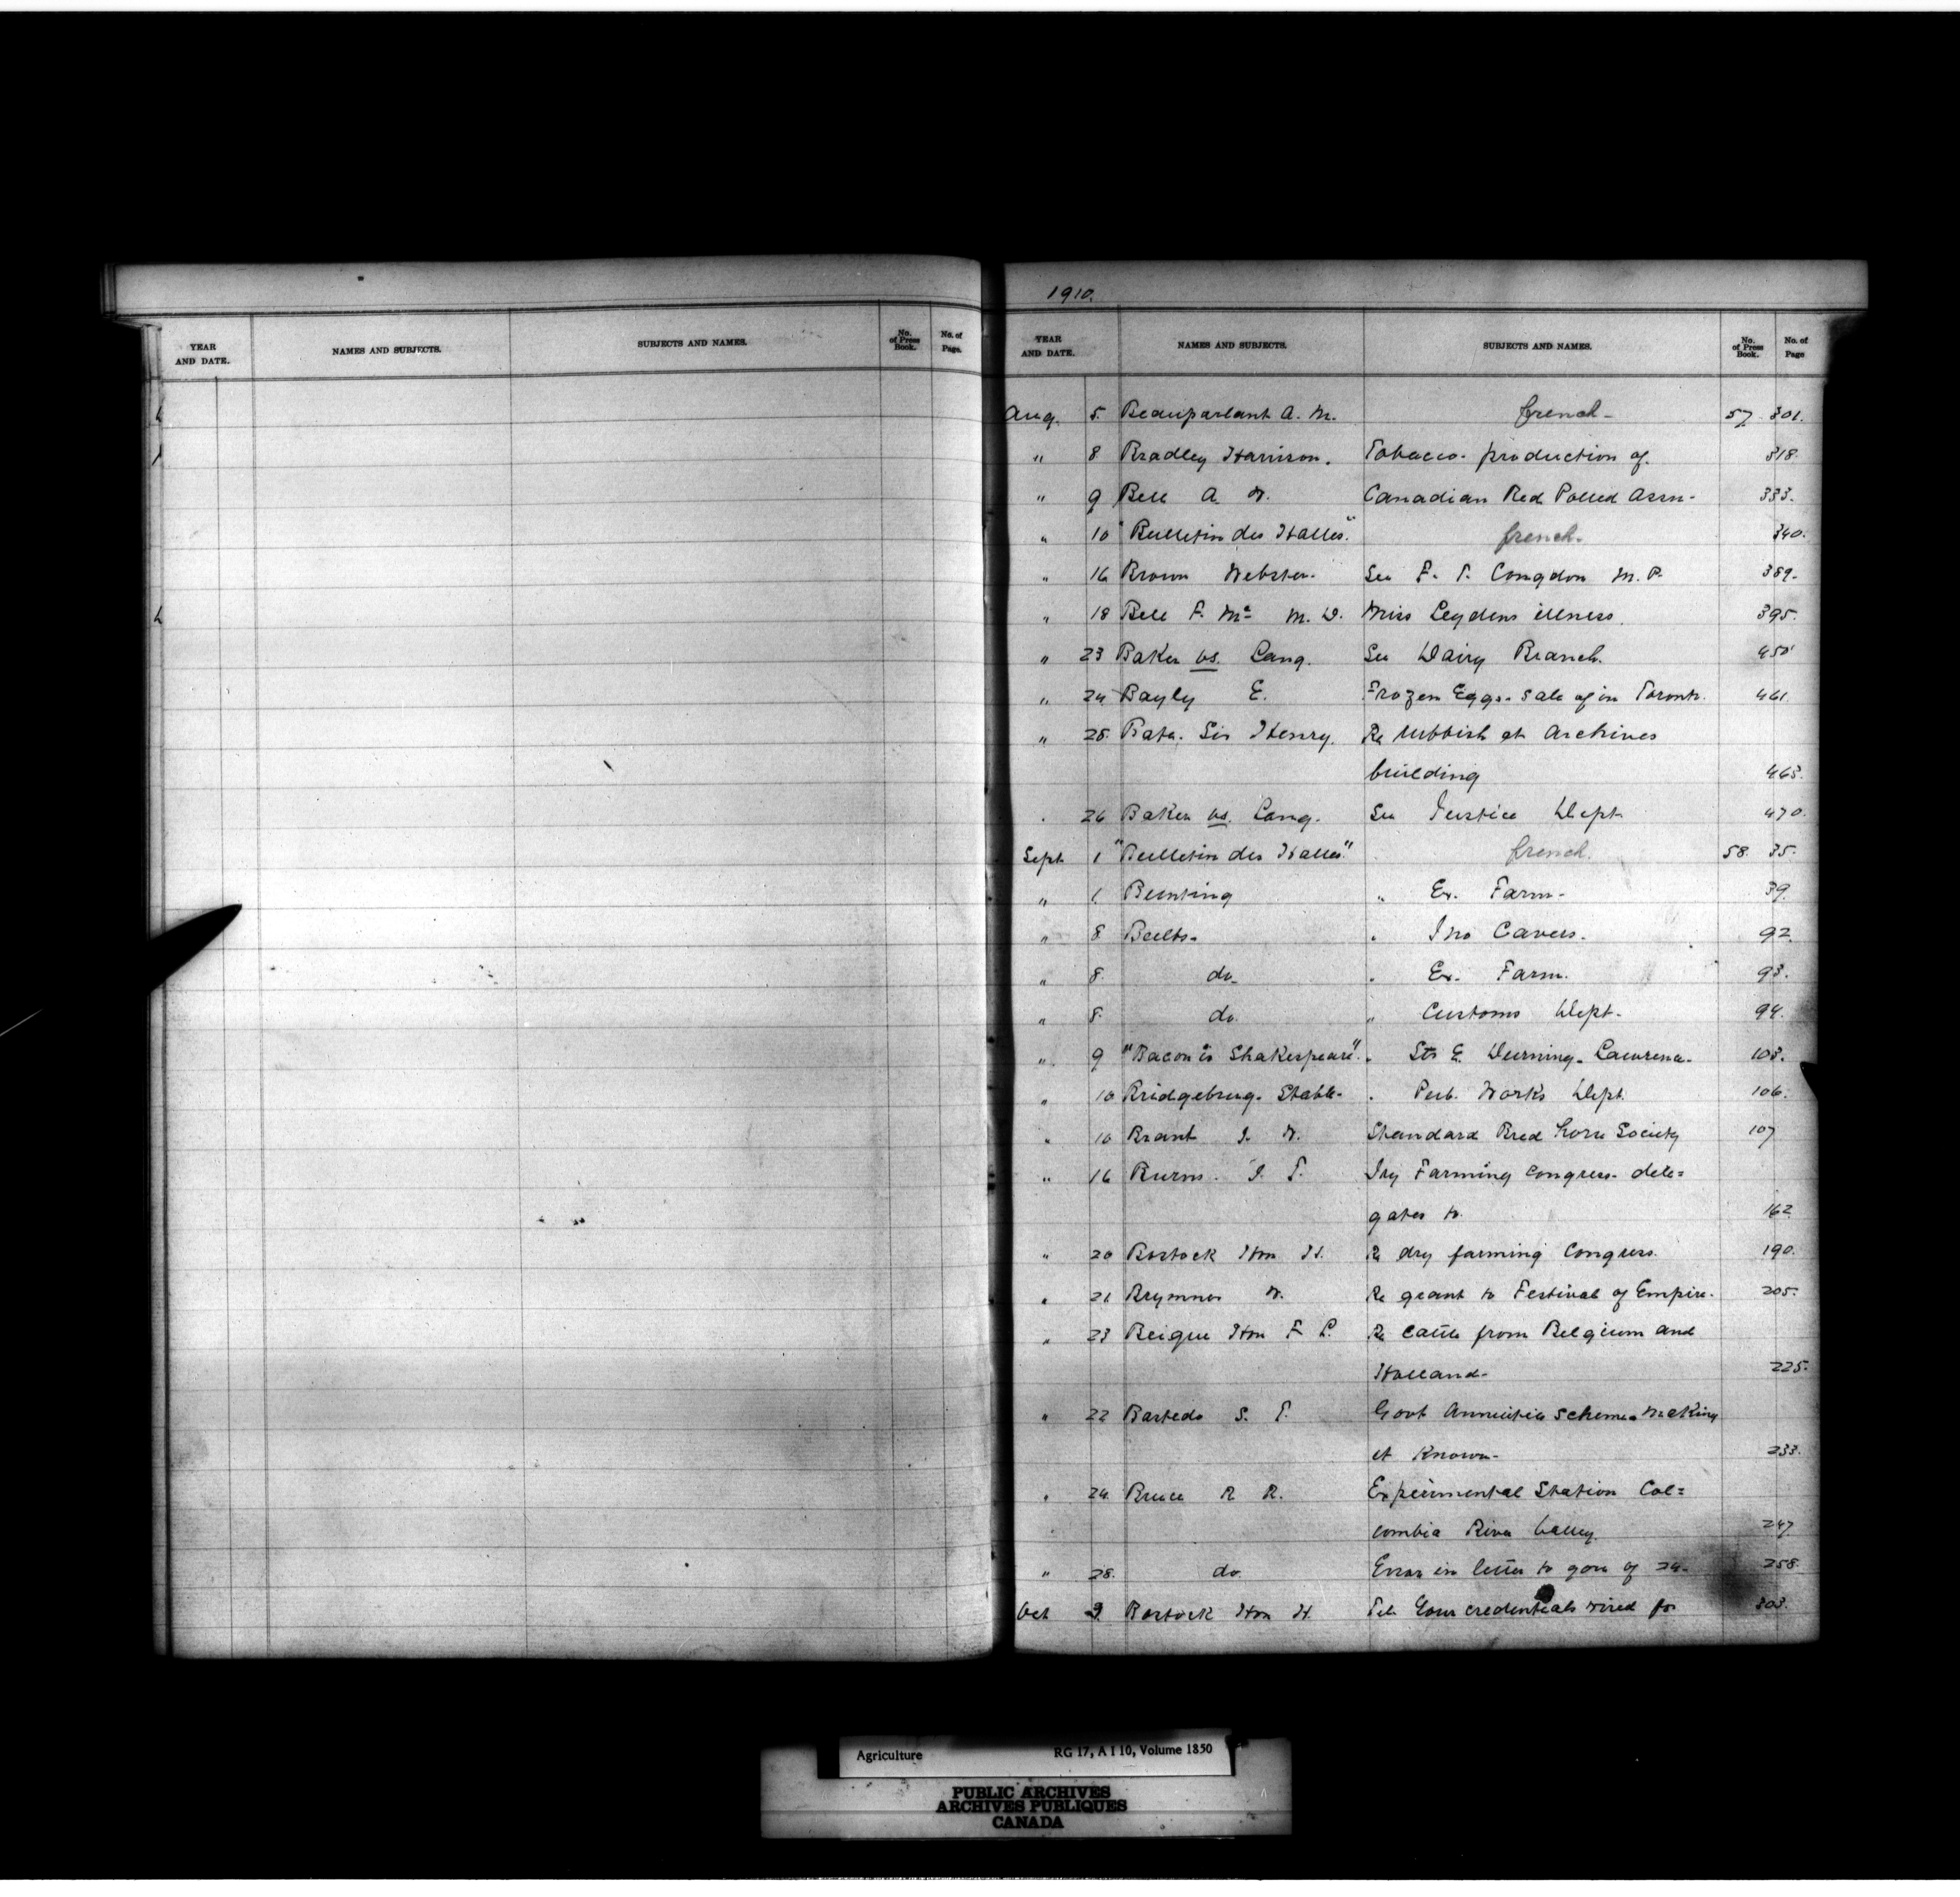 YEAR AND DATE. NAMES AND SUBJECTS. SUBJECTS AND NAMES. No. of Press Book. No. of Page.
1910.
YEAR AND DATE. NAMES AND SUBJECTS. SUBJECTS AND NAMES. No. of Press Book. No. of Page
Aug. 5. Beauparlant A. M. french- 57 301.
" 8 Bradley Harrison. Tobacco- production of. 318.
" 9 Bell A. W. Canadian Red Polled Assn- 333.
" 10 "Bulletin des Halles." french- 340.
" 16 Brown Webster- See F. T. Congdon M. P. 389-
" 18 Bell F. Mc M. D. Miss Leydens illness. 395.
" 23 Baker vs. Lang. See Dairy Branch. 450
" 24 Bayly E. Frozen Eggs- sale of in Toronto. 461.
" 25. Bate. Sir Henry. Re rubbish at Archives
building 465.
. 26 Baker vs. Lang. See Justice Dept. 470.
Sept. 1 "Bulletin des Halles." french. 58. 35.
" 1. Bunting " Ex. Farm- 39.
" 8. Bulbs- " Jno Cavers. 92.
" 8. do- " Ex- Farm. 93.
" 8. do. " Customs Dept- 94.
" 9 "Bacon is Shakespeare". " Sir E. Durning-Lawrence- 103.
" 10 Bridgeburg- Stable- . Pub. Works Dept. 106.
" 10 Brant J. W. Standard Bred horse Society 107
" 16 Burns. J. T. Dry Farming Congress- dele=
gates to. 162.
" 20 Bostock Hon H. Re dry farming Congress. 190.
" 21 Brymner W. Re grant to Festival of Empire. 205.
" 23 Beique Hon F. L. Re cattle from Belgium and
Holland- 225.
" 22 Bastedo S. T. Govt Annuities scheme- making
it known- 233.
" 24. Bruce R R. Experimental Station Col=
umbia River Valley. 247.
" 28. do. Error in letter to you of 24- 258.
Oct 3. Bostock Hon H. Tel. Your credentials wired for 303.
Agriculture RG 17, A I 10, Volume 1850
PUBLIC ARCHIVES
ARCHIVES PUBLIQUES
CANADA